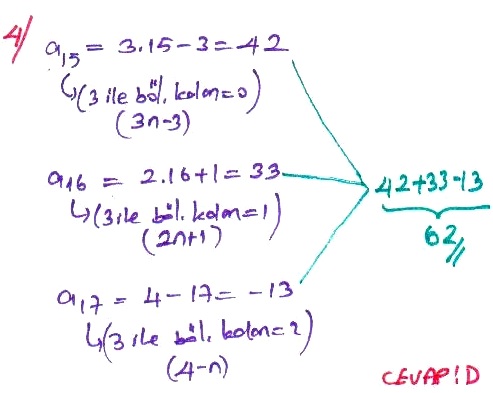 4/
a₁₅ = 3.15-3=42
↳(3 ile böl. kalan=0)
(3n-3)
a₁₆ = 2.16+1=33
↳(3 ile böl. kalan=1)
(2n+1)
42+33-13
62//
a₁₇ = 4-17= -13
↳(3 ile böl. kalan=2)
(4-n)
CEVAP:D